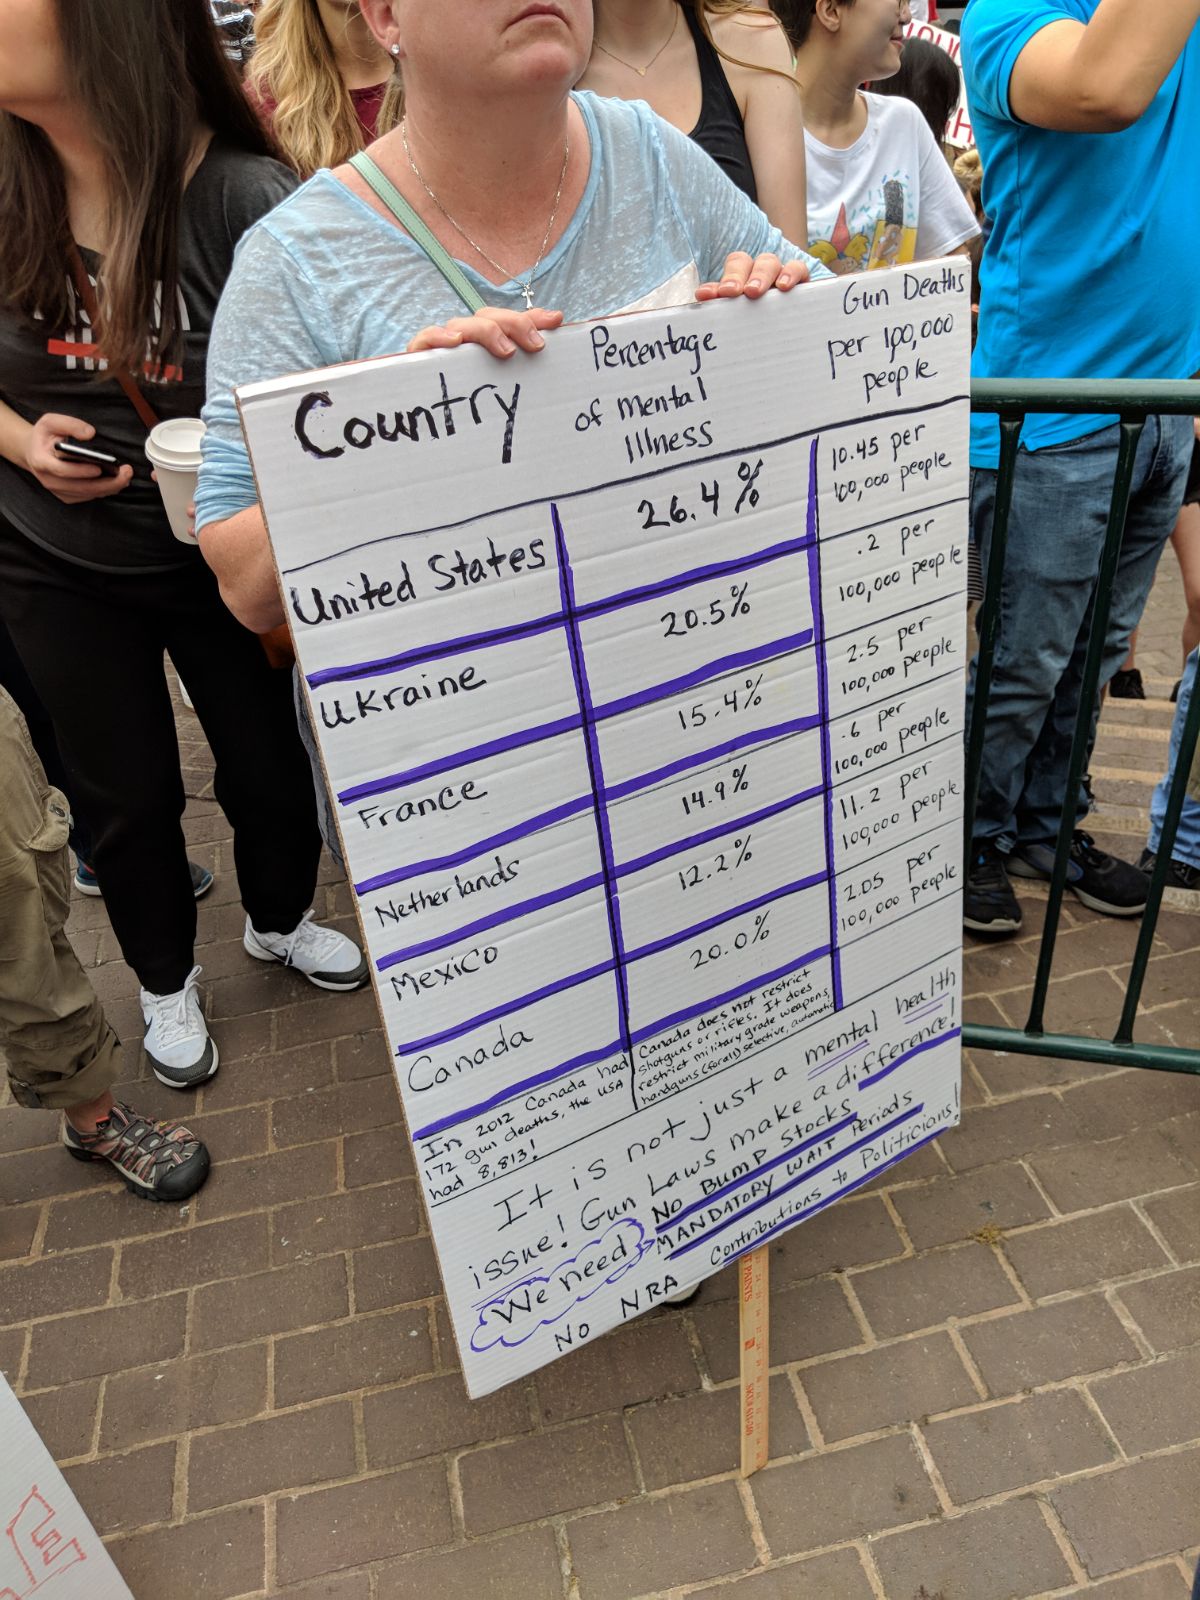 Country
Percentage
of mental
Illness
Gun Deaths
per 100,000
people
United States
26.4%
10.45 per
100,000 people
Ukraine
20.5%
.2 per
100,000 people
France
15.4%
2.5 per
100,000 people
Netherlands
14.9%
.6 per
100,000 people
Mexico
12.2%
11.2 per
100,000 people
Canada
20.0%
2.05 per
100,000 people
In 2012 Canada had
172 gun deaths, the USA
had 8,813!
Canada does not restrict
Shotguns or rifles. It does
restrict military grade weapons,
handguns (for all) selective, automatic
It is not just a mental health
issue! Gun Laws make a difference!
We need
NO BUMP Stocks
MANDATORY WAIT Periods
No NRA Contributions to Politicians!